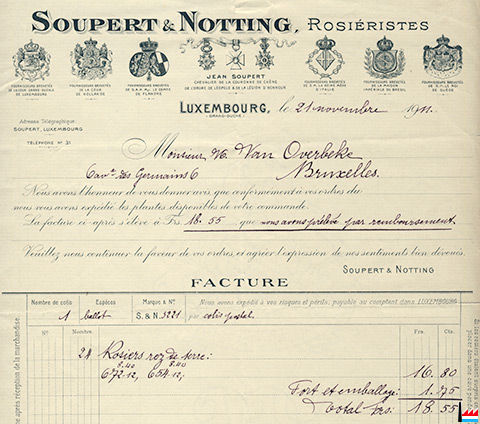 SOUPERT & NOTTING, ROSIÉRISTES
FOURNISSEURS BREVETÉS DE LA COUR GRAND DUCALE DE LUXEMBOURG
FOURNISSEURS BREVETÉS DE LA COUR DE HOLLANDE
FOURNISSEURS BREVETÉS DE S. A. R. Mgr LE COMTE DE FLANDRE
JEAN SOUPERT
CHEVALIER DE LA COURONNE DE CHÊNE
DE L'ORDRE DE LÉOPOLD & DE LA LÉGION D'HONNEUR
FOURNISSEURS BREVETÉS DE S. M. LA REINE MÈRE D'ITALIE
FOURNISSEURS BREVETÉS DE LA MAISON IMPÉRIALE DU BRÉSIL
FOURNISSEURS BREVETÉS DE S. M. LE ROI DE SUÈDE
LUXEMBOURG, le 21 novembre 1911.
(GRAND-DUCHÉ)
Adresse Télégraphique:
SOUPERT, LUXEMBOURG
TÉLÉPHONE Nº 31
Monsieur M. Van Overbeke
6 avᵉ des Germains 6 Bruxelles.
Nous avons l'honneur de vous donner avis que conformément à vos ordres du
nous vous avons expédié les plantes disponibles de votre commande.
La facture ci-après s'élève à Frs 18.55 que nous avons prélevé par remboursement.
Veuillez nous continuer la faveur de vos ordres, et agréer l'expression de nos sentiments bien dévoués.
SOUPERT & NOTTING
FACTURE
Nombre de colis Espèces Marque & Nº Nous avons expédié à vos risques et périls, payable au comptant dans LUXEMBOURG
1 ballot S. & N. 3221 par colis postal.
Nº Nombre Frs. Cts.
24 Rosiers rez de terre:
8.40 8.40
672.12, 654.12, 16.80
Port et emballage: 1.75
Total frs: 18.55
après réception de la marchandise.